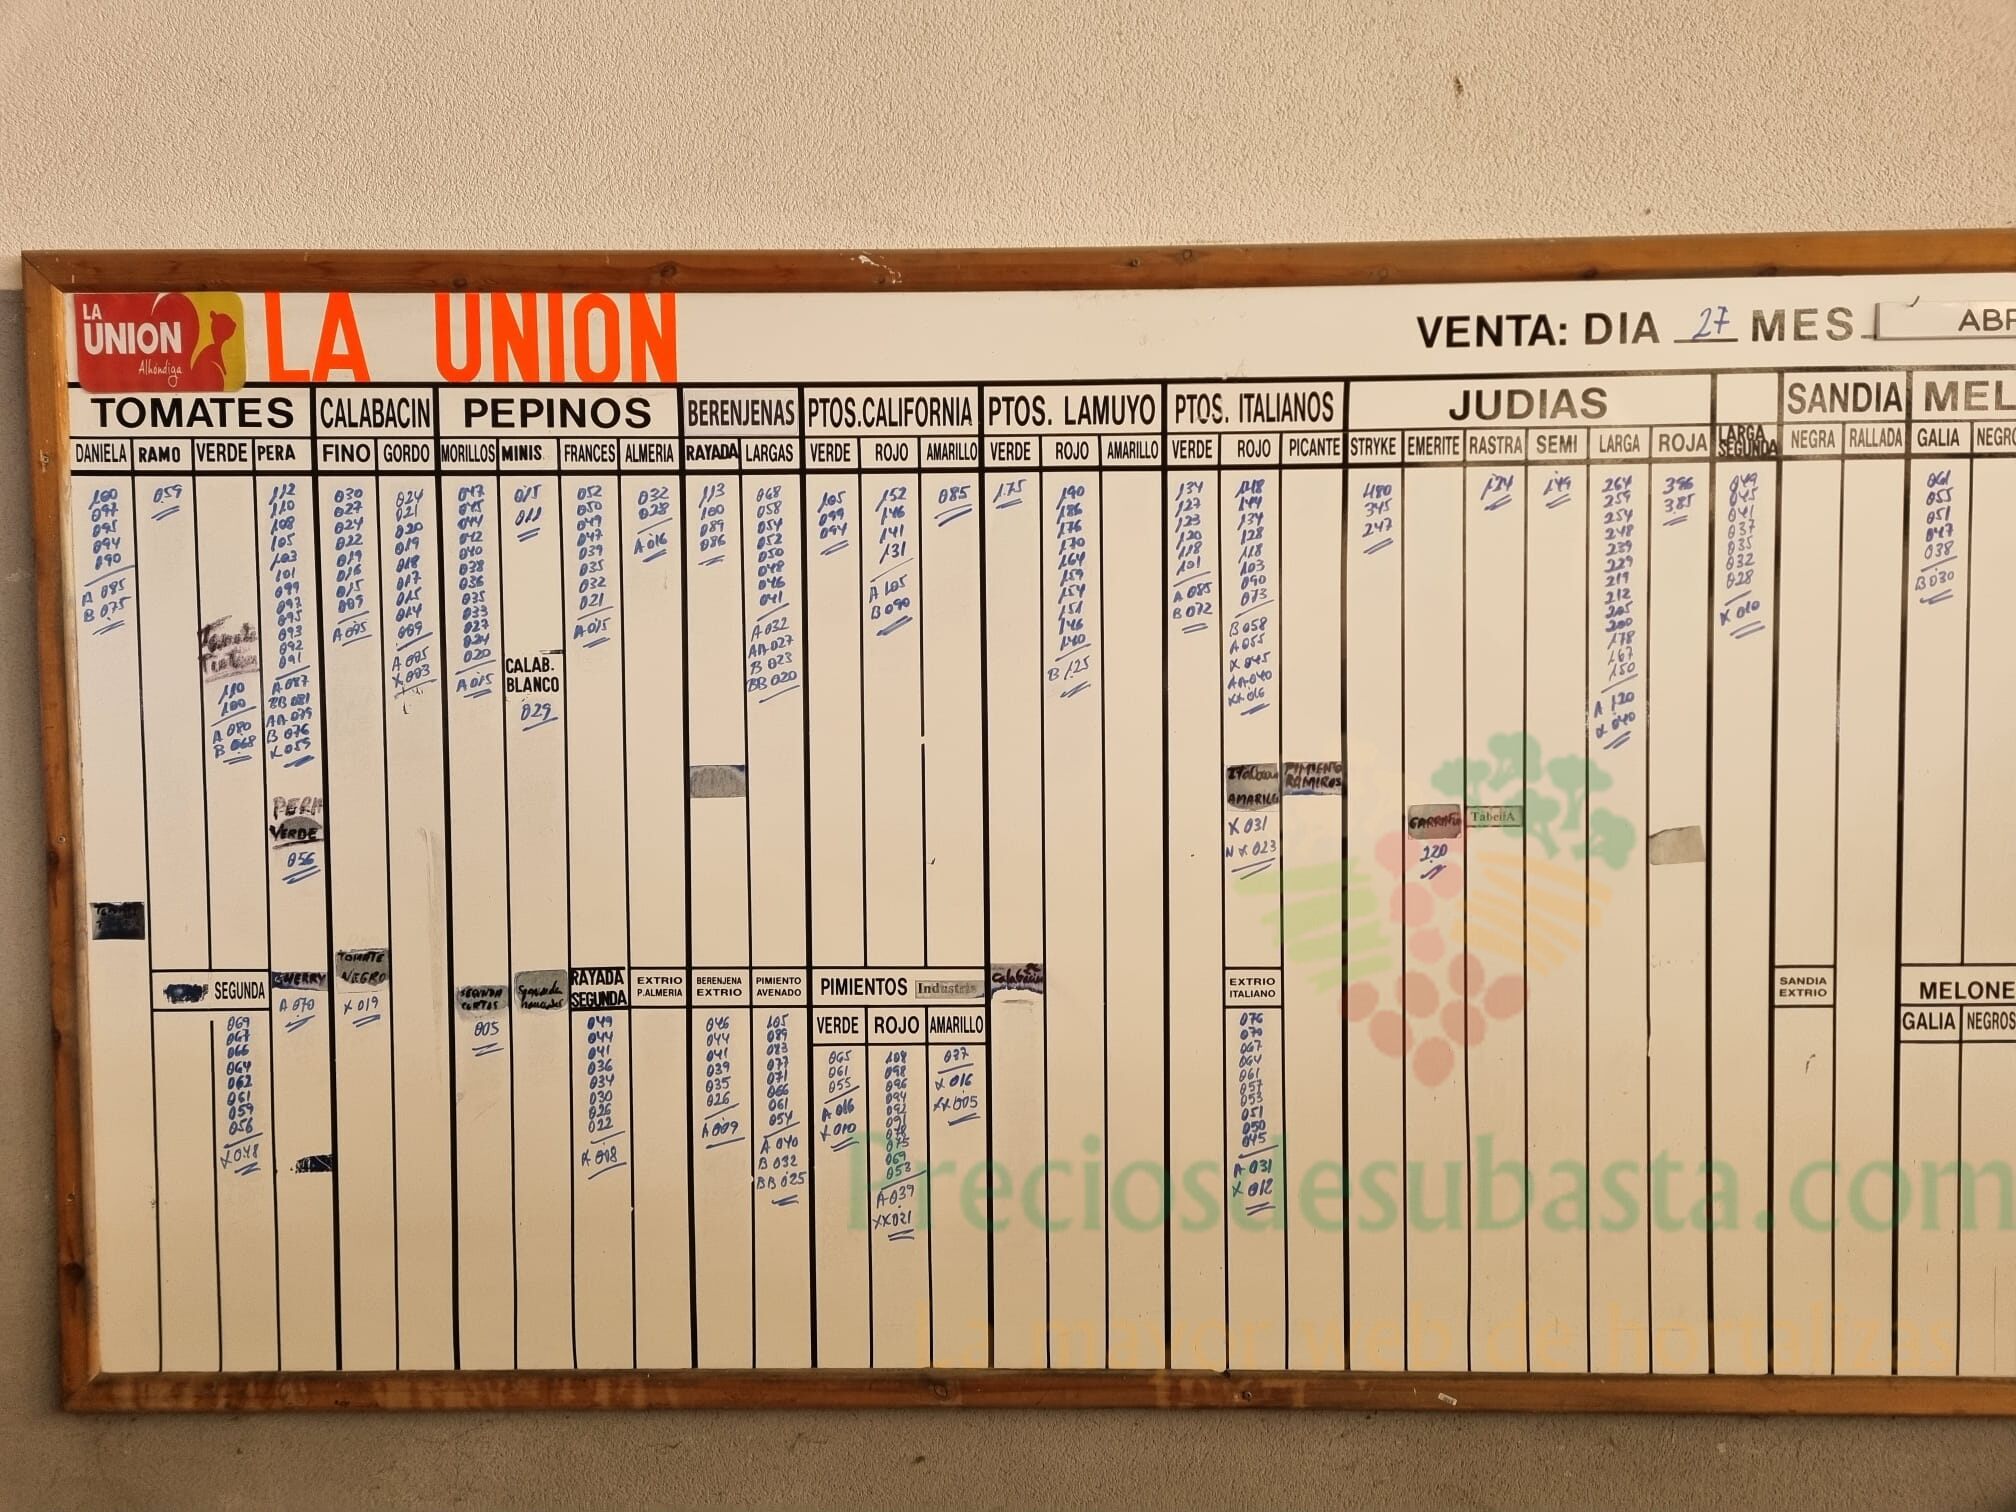 LA
UNION
Alhóndiga
LA UNION
VENTA: DIA 27 MES
TOMATES CALABACIN PEPINOS BERENJENAS PTOS.CALIFORNIA PTOS. LAMUYO PTOS. ITALIANOS JUDIAS SANDIA
DANIELA RAMO VERDE PERA FINO GORDO MORILLOS MINIS FRANCES ALMERIA RAYADA LARGAS VERDE ROJO AMARILLO VERDE ROJO AMARILLO VERDE ROJO PICANTE STRYKE EMERITE RASTRA SEMI LARGA ROJA LARGA SEGUNDA NEGRA RALLADA GALIA
100
097
095
094
090
A 085
B 075
059
110
100
A 080
B 068
112
110
108
105
103
101
099
097
095
093
092
091
A 087
BB 081
AA 079
B 076
X 055
PERA
VERDE
056
030
027
024
022
019
016
015
009
A 005
024
021
020
019
018
017
015
014
009
A 005
X 003
047
045
044
042
040
038
036
035
033
027
024
020
A 015
015
011
CALAB.
BLANCO
029
052
050
049
047
039
035
032
021
A 015
032
028
A 016
113
100
089
086
068
058
054
052
050
048
046
041
A 032
AA 027
B 023
BB 020
105
099
094
152
146
141
131
A 105
B 090
085
175
190
186
176
170
164
159
154
151
146
140
B 125
134
127
123
120
118
101
A 085
B 072
148
144
134
128
118
103
090
073
B 058
A 055
X 045
AA 040
XX 016
AMARILLO
X 031
N X 023
PIMIENTO
RAMIROS
480
345
247
GARRAFO
220
124
TabellA
149
264
259
254
248
239
229
219
212
205
200
178
167
150
A 120
X 040
396
385
049
045
041
037
035
032
028
X 010
061
055
051
047
038
B 030
SEGUNDA
069
067
066
064
062
061
059
056
X 048
CHERRY
A 070
TOMATE
NEGRO
X 019
SEGUNDA
CORTOS
005
RAYADA
SEGUNDA
049
044
041
036
034
030
026
022
A 008
EXTRIO
P.ALMERIA
BERENJENA
EXTRIO
046
044
041
039
035
026
A 009
PIMIENTO
AVENADO
105
089
083
077
071
066
061
054
A 040
B 032
BB 025
PIMIENTOS Industria
VERDE ROJO AMARILLO
065
061
055
A 016
X 010
108
098
096
094
092
091
078
075
069
053
A 039
XX 021
037
X 016
XX 005
Calabacin
EXTRIO
ITALIANO
076
070
067
064
061
057
053
051
050
045
A 031
X 012
SANDIA
EXTRIO
GALIA NEGROS
Preciosdesubasta.com
La mayor web de hortalizas